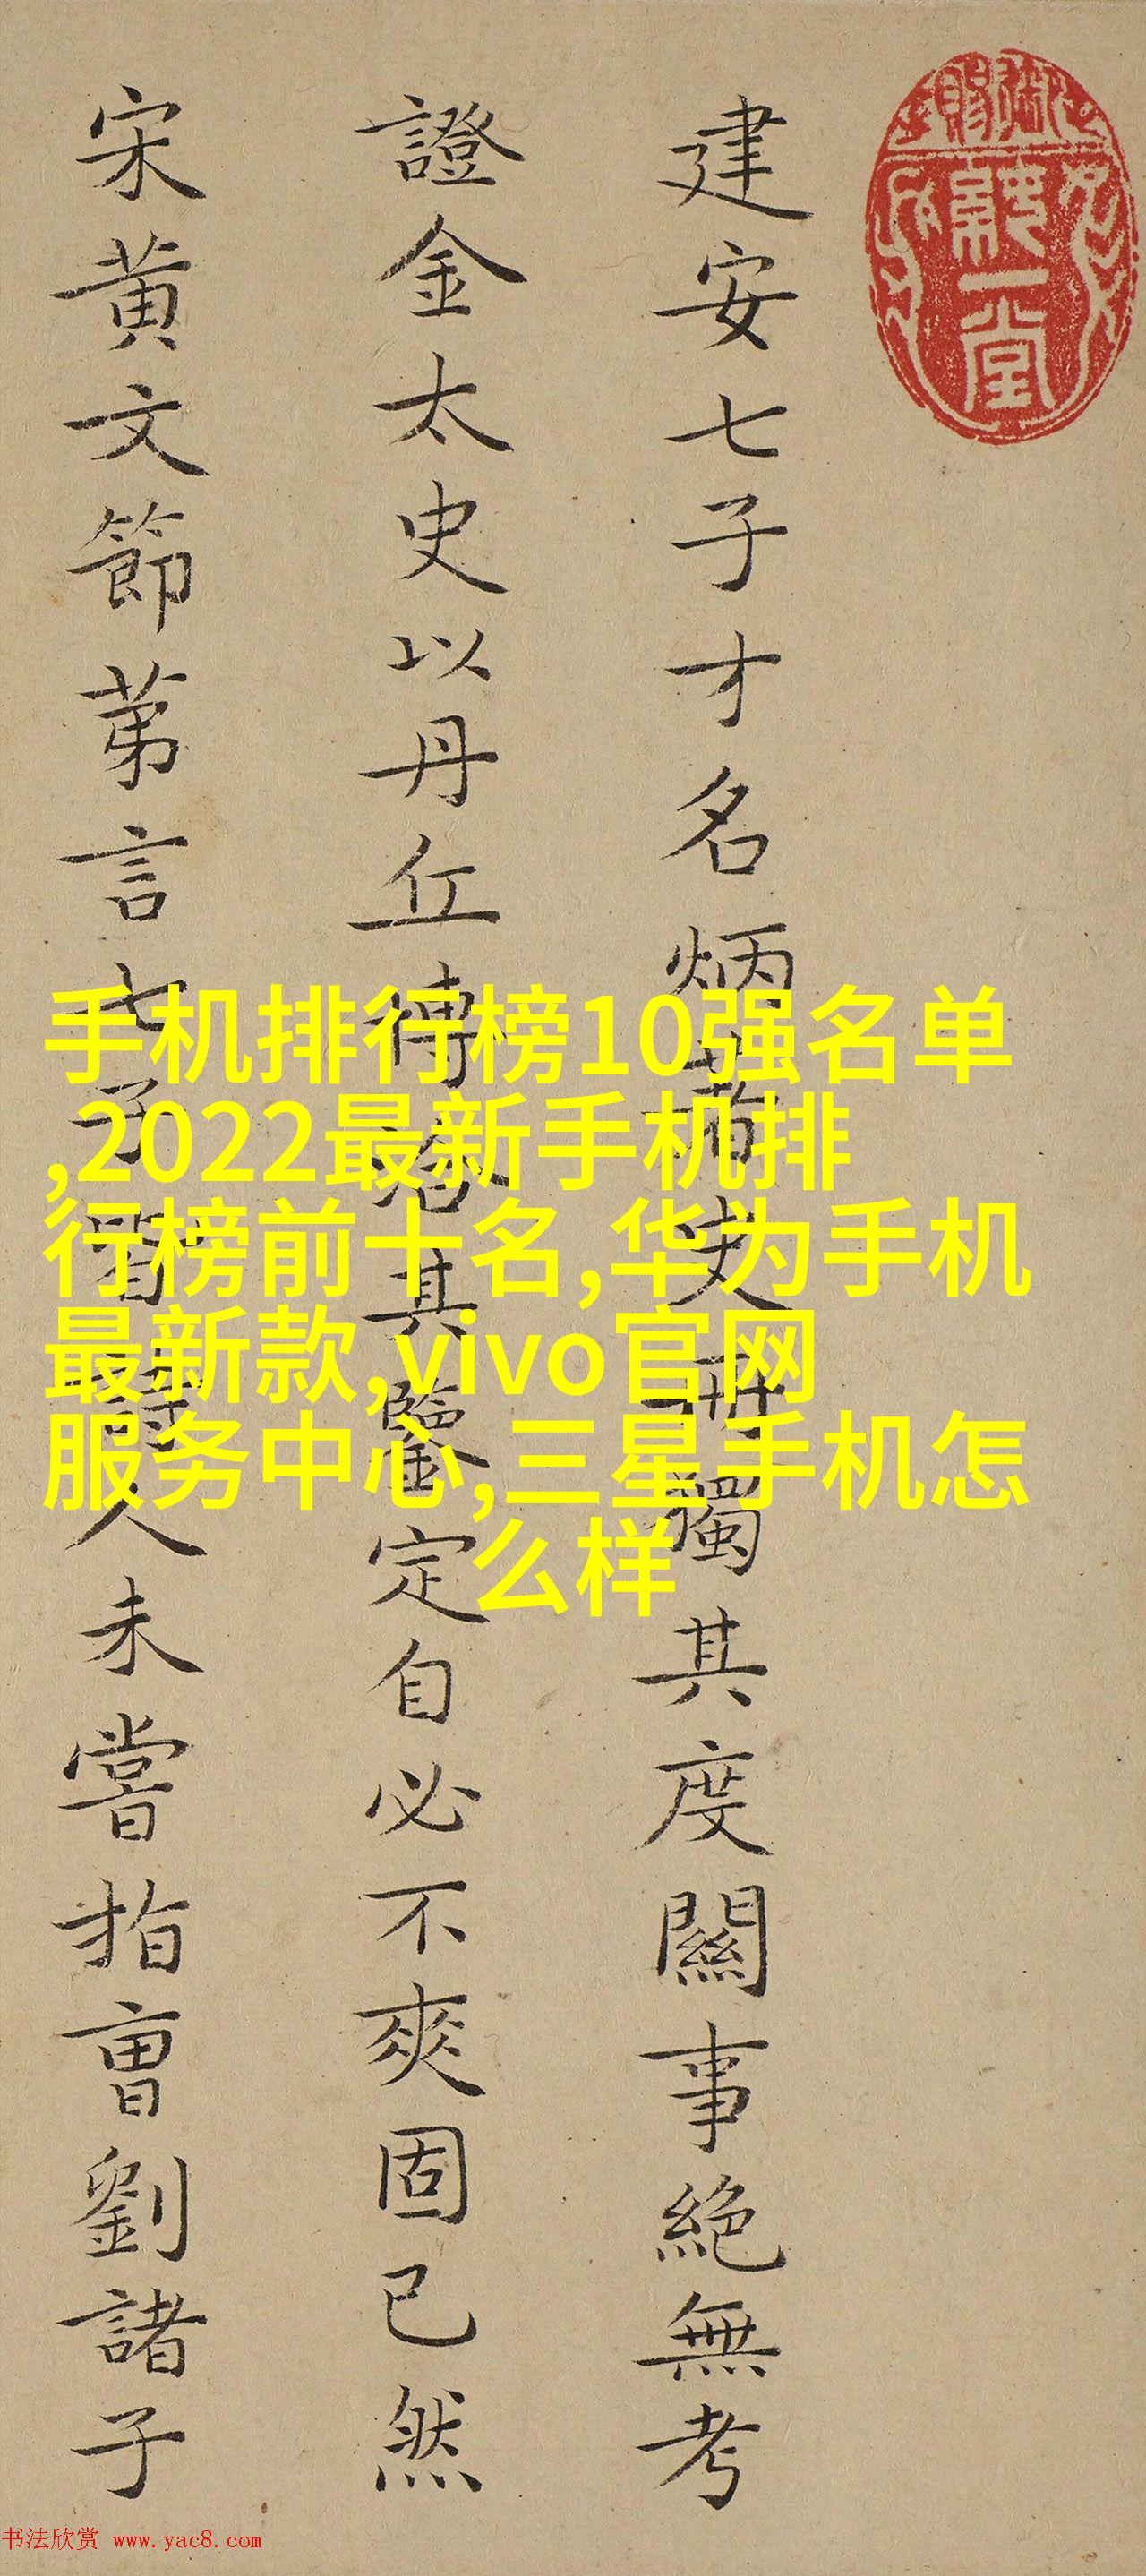 建安七子才名炳著史冊獨其度關事絕無考
證金太史以丹丘博洽其鑒定自必不爽固已然
宋黄文節苐言七子皆詩人未嘗指曹劉諸子
手机排行榜10强名单
,2022最新手机排
行榜前十名,华为手机
最新款,vivo官网
服务中心,三星手机怎
么样
书法欣赏 www.yac8.com